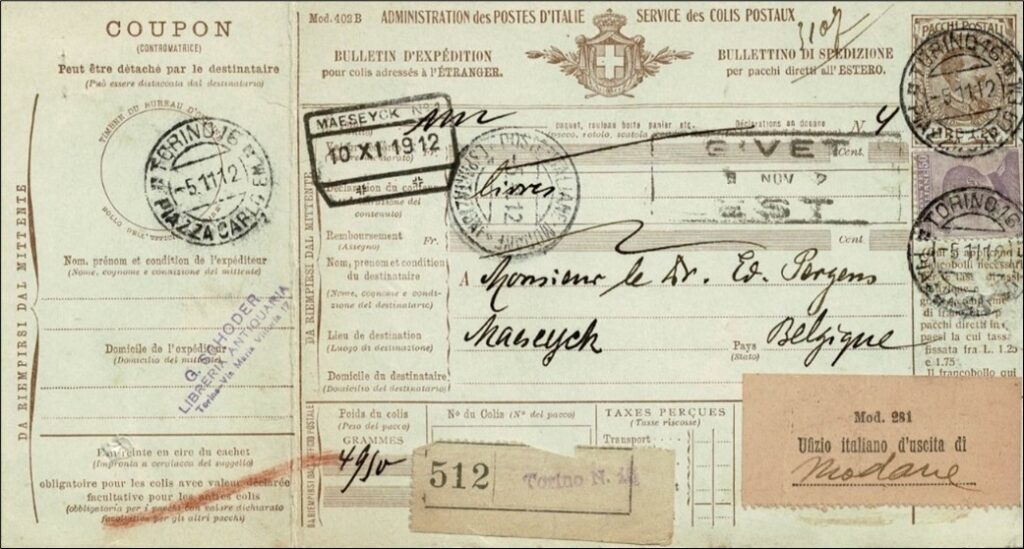 COUPON
(CONTROMATRICE)
Peut être détaché par le destinataire
(Può essere distaccata dal destinatario)
TIMBRE DU BUREAU D'
TORINO 16
-5.11.12
PIAZZA CARLO
Nom, prénom et condition de l'expéditeur
(Nome, cognome e condizione del mittente)
G. SCHODER
LIBRERIA ANTIQUARIA
Torino - Via Maria Vittoria
Domicile de l'expéditeur
(Domicilio del mittente)
Empreinte en cire du cachet
(Impronta a ceralacca del suggello)
obligatoire pour les colis avec valeur déclarée
facultative pour les autres colis
(obbligatoria per i pacchi con valore dichiarato
facoltativa per gli altri pacchi)
DA RIEMPIRSI DAL MITTENTE
Mod. 402 B
ADMINISTRATION des POSTES D'ITALIE
SERVICE des COLIS POSTAUX
3107
BULLETIN D'EXPÉDITION
pour colis adressés à l'ÉTRANGER.
BULLETTINO DI SPEDIZIONE
per pacchi diretti all'ESTERO.
PACCHI POSTALI
TORINO 16
-5.11.12
MAESEYCK No 1
10 XI 1912
un
caquet, rouleau boîte panier etc.
Déclarations en douane
N. 4
(pacco, rotolo, scatola
Cent.
GIVET
NOV
EST
livres
Déclaration du contenu
(Dichiarazione del
contenuto)
Remboursement
(Assegno)
Fr.
Cent.
Nom, prénom et condition
du destinataire
(Nome, cognome e condi-
zione del destinatario)
A Monsieur le Dr. Ed. Pergens
Lieu de destination
(Luogo di destinazione)
Maeseyck
Pays
(Stato)
Belgique
Domicile du destinataire
(Domicilio del destinatario)
TORINO 16
-5.11.12
DA RIEMPIRSI DAL MITTENTE
DA RIEMPIRSI DALL'UFFICIO POSTALE
Poids du colis
(Peso del pacco)
GRAMMES
4950
No du Colis (No del pacco)
TAXES PERÇUES
(Tasse riscosse)
Transport
512
Torino N.
Mod. 281
Ufizio italiano d'uscita di
Modane